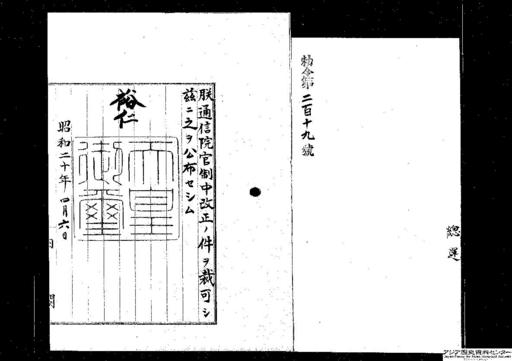 勅令第二百十九號
總運
朕通信院官制中改正ノ件ヲ裁可シ
茲ニ之ヲ公布セシム
裕仁
天皇御璽
昭和二十年四月六日
内閣
アジア歴史資料センター